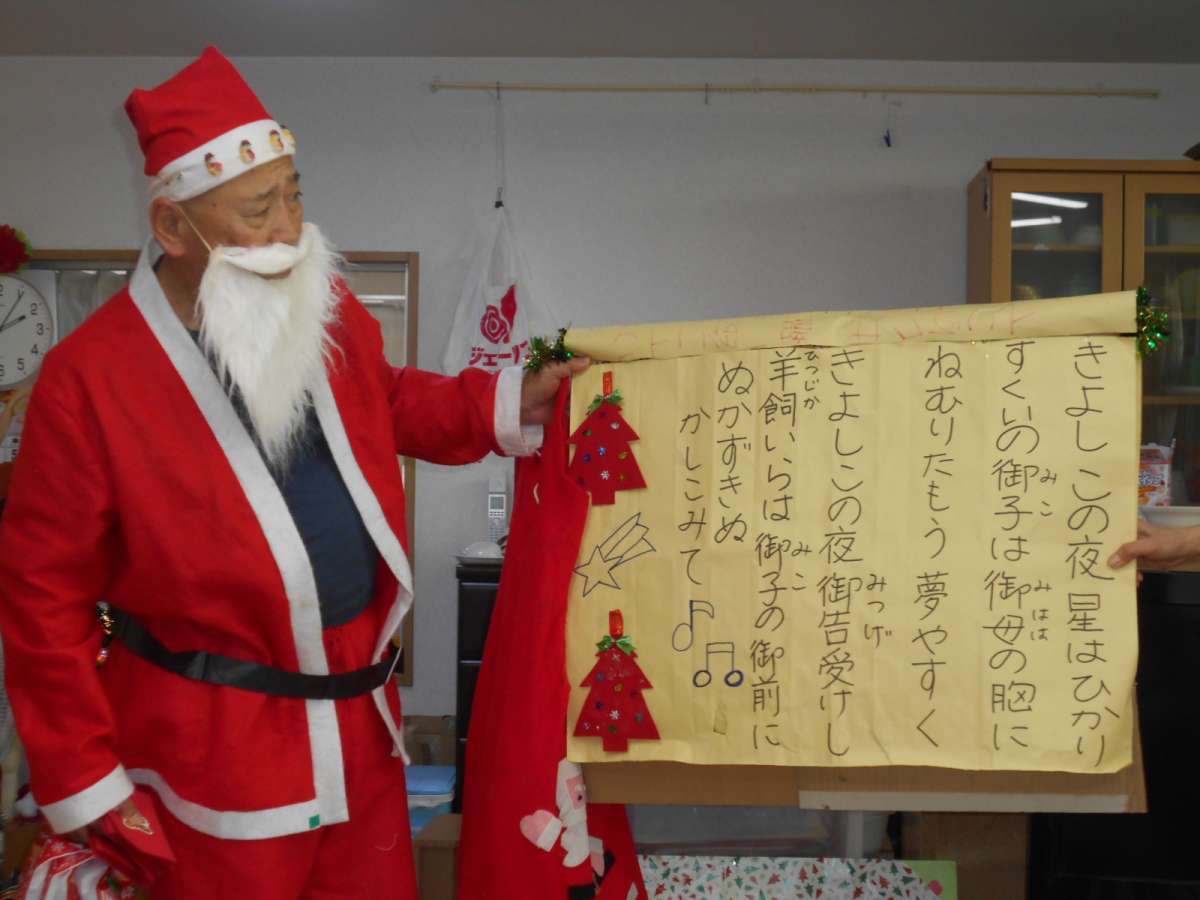 きよしこの夜 星はひかり
すくいの御子は 御母の胸に
みこ
みはは
ねむりたもう 夢やすく
きよしこの夜 御告受けし
みつげ
羊飼いらは 御子の御前に
ひつじか
みこ
ぬかずきぬ
かしこみて
ジェー
1
2
3
4
5
6